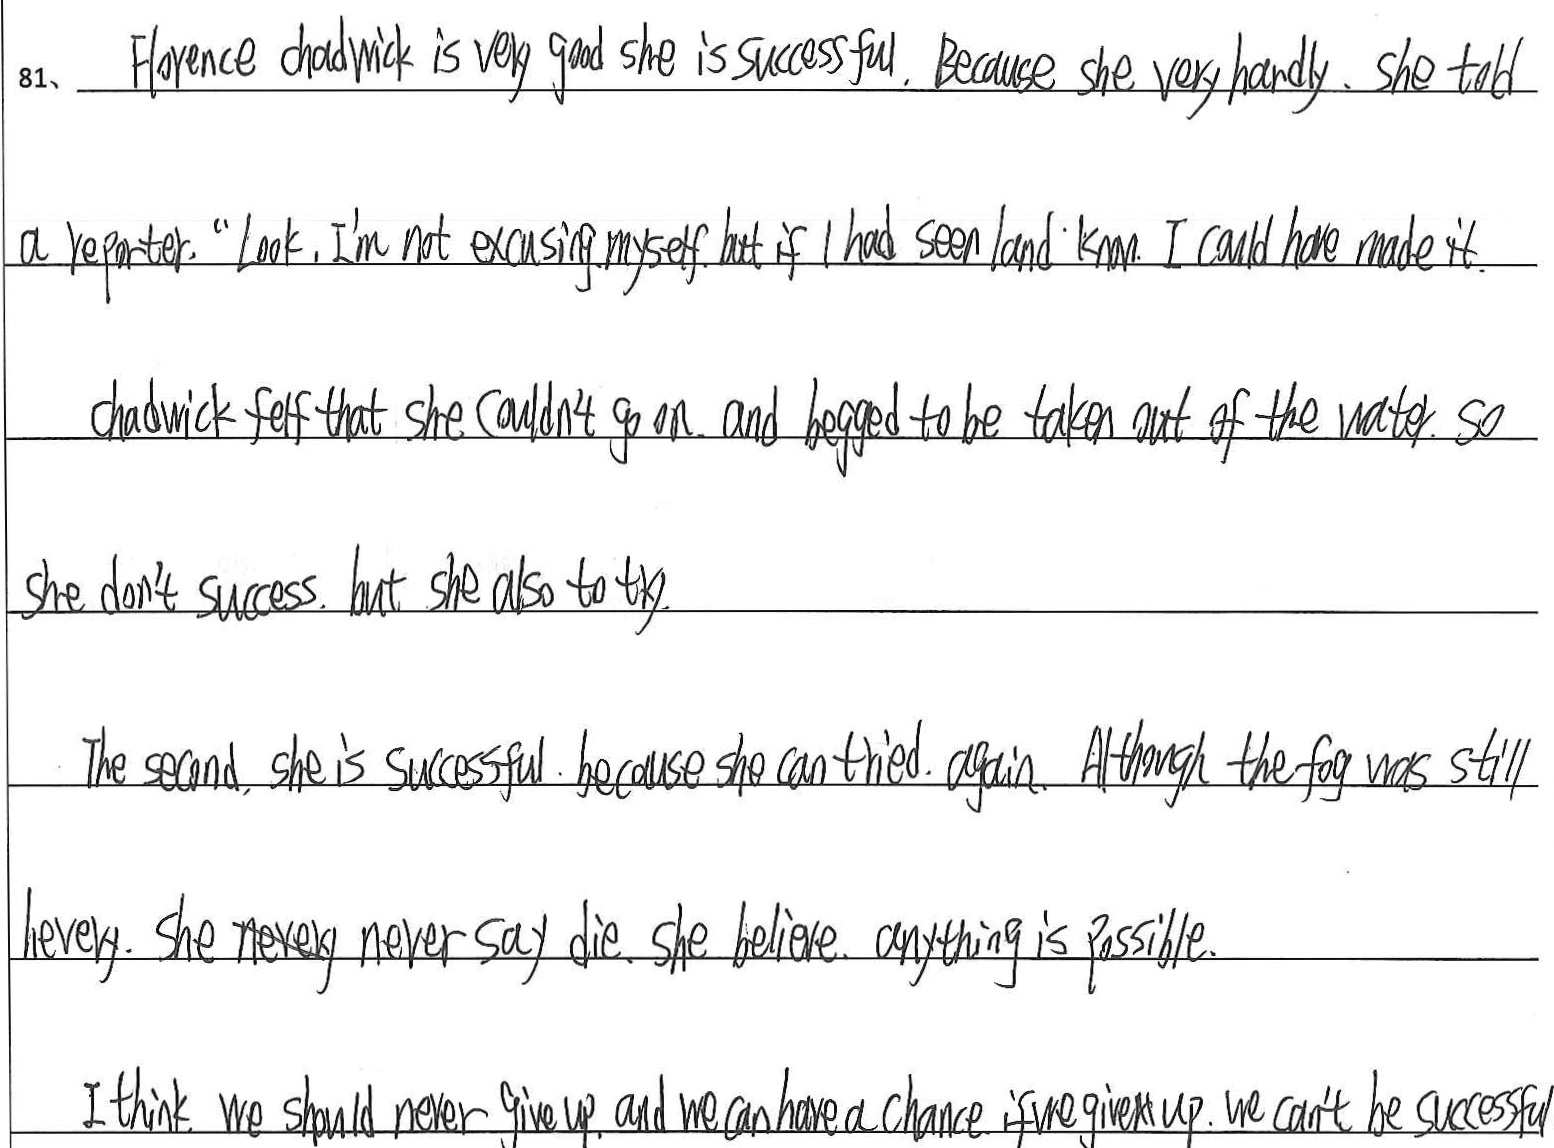 81、 Florence chadwick is very good she is successful. Because she very hardly. she told
a reporter. "Look. I'm not excusing myself. but if I had seen land know. I could have made it.
chadwick felf that she couldn't go on. and begged to be taken out of the water. so
she don't success. but she also to try.
The second, she is successful. because she can tried. again. Although the fog was still
hevery. She never say die. she believe. anything is possible.
I think. we should never give up. and we can have a chance. if we give up. we can't be successful